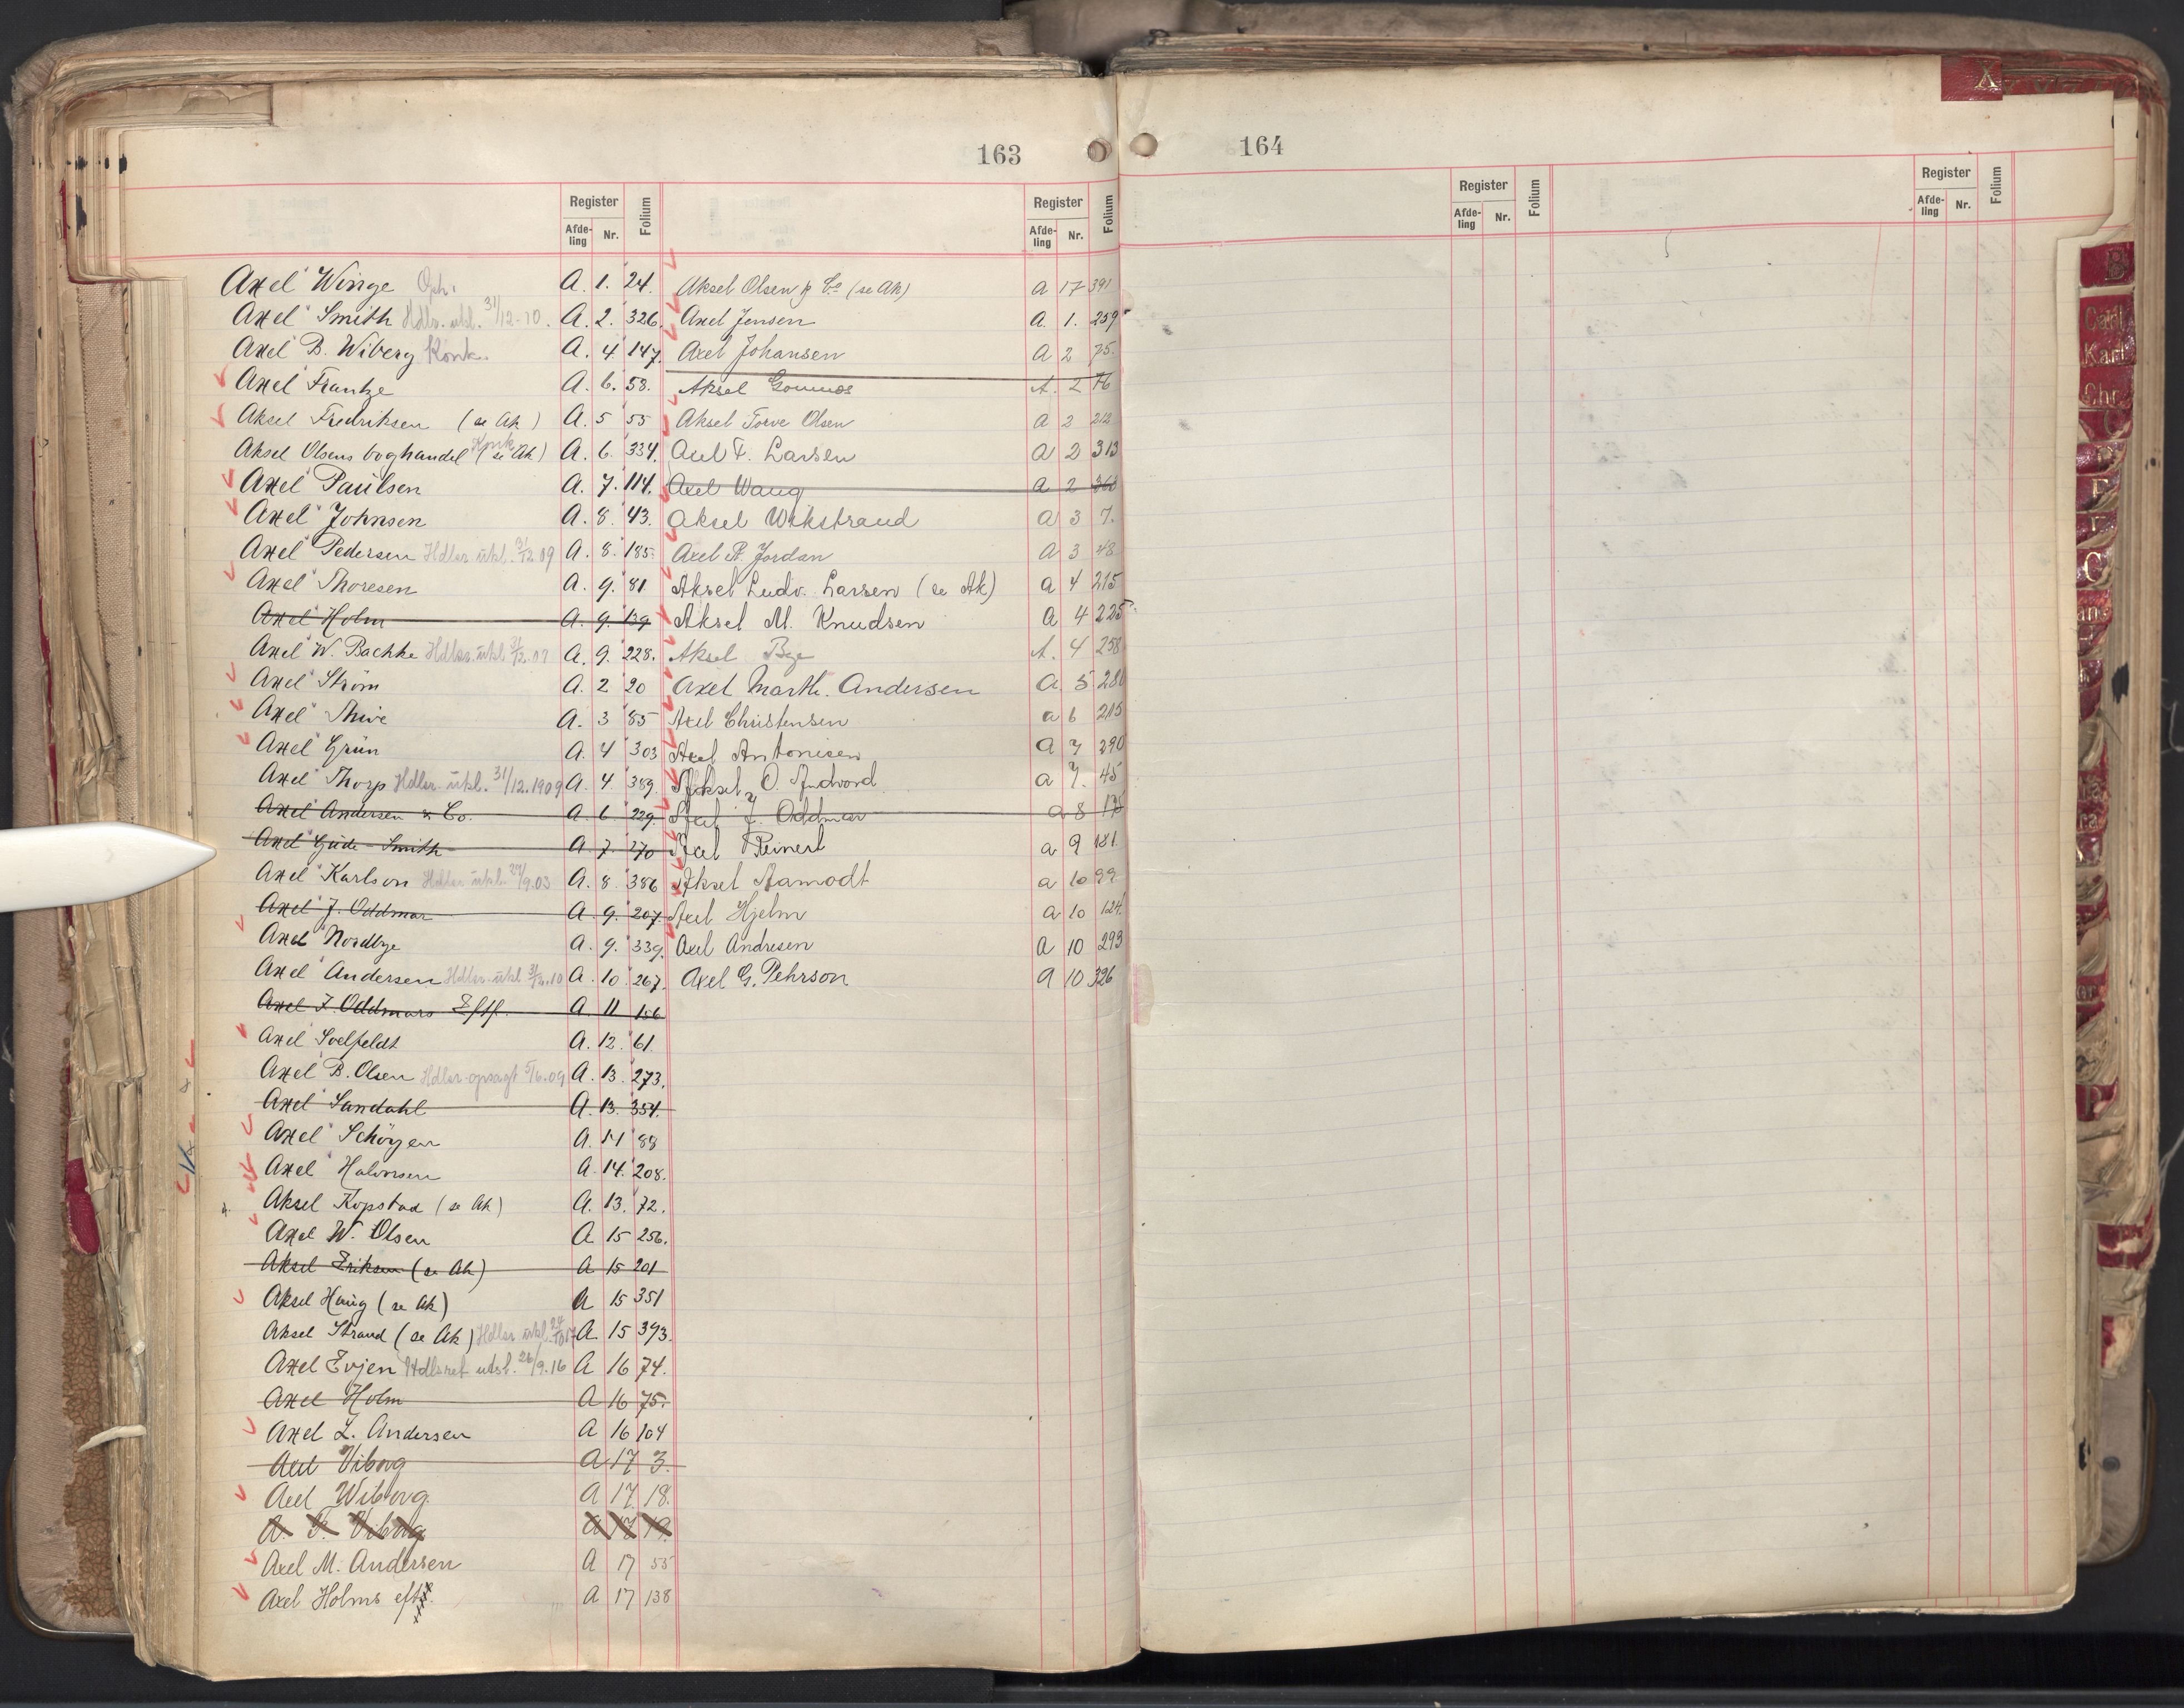 163
Register Folium Register Folium
Afde-ling Nr. Afde-ling Nr.
Axel Winge Oph. A. 1. 24.
Axel Smith Hdlr. utl. 31/12-10. A. 2. 326.
Axel B. Wiberg Konk. A. 4. 147.
Axel Frantze A. 6. 58.
Aksel Fredriksen (se Ak) A. 5 55
Aksel Olsens boghandel Konk. (se Ak) A. 6. 334.
Axel Paulsen A. 7. 114.
Axel Johnsen A. 8. 43.
Axel Pedersen Hdlsr. utl. 31/12.09 A. 8. 185.
Axel Thoresen A. 9. 81
Axel Holm A. 9. 139
Axel W. Bachke Hdlsr. utl. 31/12.07 A. 9. 228.
Axel Strøm A. 2 20
Axel Thive A. 3 85
Axel Grün A. 4 303
Axel Thorp Hdlsr. utl. 31/12.1909 A. 4. 389.
Axel Andersen & Co. A. 6. 229.
Axel Gude-Smith A. 7. 270
Axel Karlson Hdlsr. utl. 24/9.03 A. 8. 386
Axel J. Oddmar A. 9. 207.
Axel Nordbye A. 9. 339.
Axel Andersen Hdlsr. utl. 31/12.10 A. 10. 267.
Axel J. Oddmars Eftf. A. 11 156
Axel Soelfeldt A. 12. 61.
Axel B. Olsen Hdlsr. opsagt 5/6.09 A. 13. 273.
Axel Sandahl A. 13. 354.
Axel Schöyen A. 14 88
Axel Halvorsen A. 14. 208.
Aksel Kopstad (se Ak) A. 13. 72.
Axel W. Olsen A 15 256.
Aksel Eriksen (se Ak) A 15 201
Aksel Haug (se Ak) A 15 351
Aksel Strand (se Ak) Hdlsr. utl. A. 15 393.
Axel Evjen Hdlsret utsl. 26/9.16 A 16 74.
Axel Holm A 16 75.
Axel L. Andersen A 16 104
Axel Viborg A 17 3.
Axel Wiborg A 17. 18.
A. Viborg A 17 19.
Axel M. Andersen A 17 55
Axel Holms eftf. A 17 138
Aksel Olsen & Co (se Ak) A 17 391
Axel Jensen A. 1. 259
Axel Johansen A 2 75.
Aksel A. 2 76
Aksel Torve Olsen A 2 212
Axel F. Larsen A 2 313
Axel Wang A 2 368
Aksel Wikstrand A 3 7.
Axel R. Jordan A 3 48
Aksel Ludv. Larsen (se Ak) A 4 215
Aksel M. Knudsen A 4 225
Aksel Bye A. 4 258
Axel Marth. Andersen A. 5 280
Axel Christensen A 6 215
Axel Antonisen A 7 290
Aksel O. Andvord A 7. 45
Axel J. Oddmar A 8 175
Axel Reinert A 9 181
Aksel Aamodt A 10 99
Axel Hjelm A 10 124.
Axel Andresen A 10 293
Axel G. Pehrson A 10 326
164
Register Folium Register Folium
Afde-ling Nr. Afde-ling Nr.
X
B
Carl
Karl
Chr.